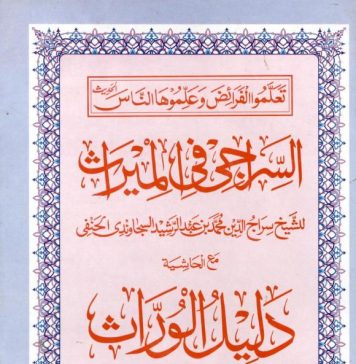 تَعَلَّمُوا الْفَرَائِضَ وَعَلِّمُوْهَا النَّاسَ الحديث
السِّرَاجِی فِی الْمِیْرَاثِ
للشیخ سراج الدین محمد بن عبد الرشید السجاوندی الحنفی
مع الحاشیة
دَلِیْلُ الْوُرَّاث